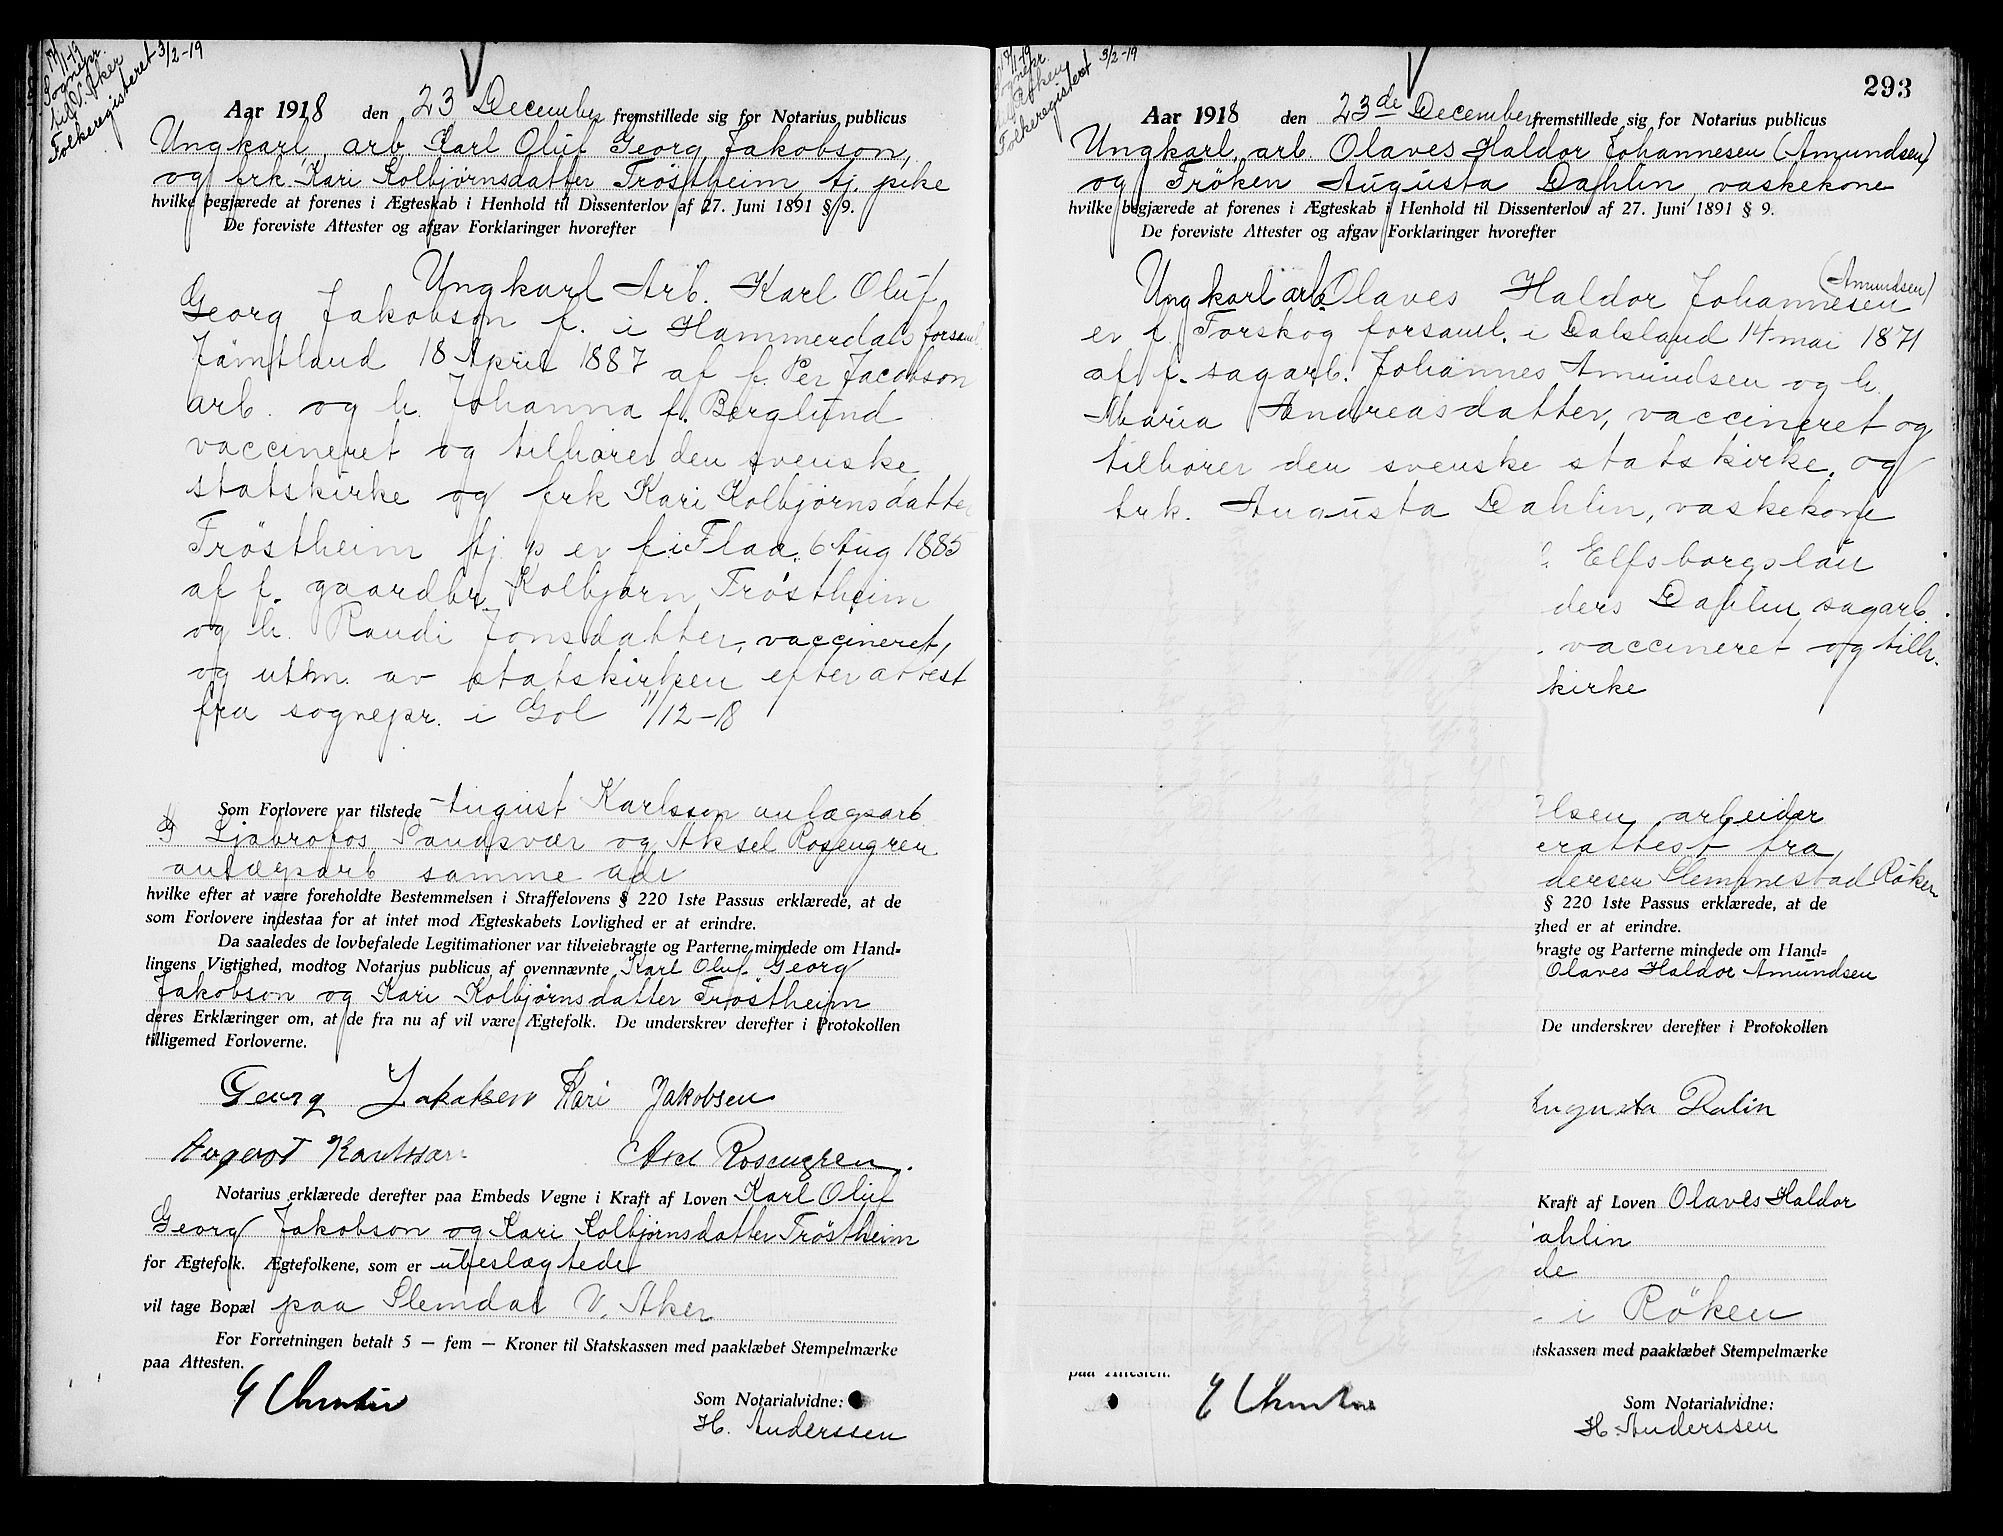 17/1-19
Sognepr.
til V. Aker
Folkeregisteret 3/2-19
Aar 1918 den 23 December fremstillede sig for Notarius publicus
Ungkarl, arb. Karl Oluf Georg Jakobson,
og frk. Kari Kolbjørnsdatter Tröstheim, tj. pike
hvilke begjærede at forenes i Ægteskab i Henhold til Dissenterlov af 27. Juni 1891 § 9.
De foreviste Attester og afgav Forklaringer hvorefter
Ungkarl Arb. Karl Oluf
Georg Jakobson f. i Hammerdals forsaml.
Jämtland 18 April 1887 af f. Per Jacobson
arb. og h. Johanna f. Berglund
vaccineret og tilhører den svenske
statskirke og frk Kari Kolbjørnsdatter
Tröstheim tj. p er f. i Flaa. 6 Aug 1885
af f. gaardbr. Kolbjørn Tröstheim
og h. Randi Jonsdatter, vaccineret,
og utm. av statskirken efter attest
fra sognepr. i Gol 11/12-18
Som Forlovere var tilstede August Karlsson anlægsarb
Ljabrofos, Sandsvær og Aksel Rosengren
anlægsarb samme adr
hvilke efter at være foreholdte Bestemmelsen i Straffelovens § 220 1ste Passus erklærede, at de
som Forlovere indestaa for at intet mod Ægteskabets Lovlighed er at erindre.
Da saaledes de lovbefalede Legitimationer var tilveiebragte og Parterne mindede om Hand-
lingens Vigtighed, modtog Notarius publicus af ovennævnte Karl Oluf Georg
Jakobson og Kari Kolbjørnsdatter Tröstheim
deres Erklæringer om, at de fra nu af vil være Ægtefolk. De underskrev derefter i Protokollen
tilligemed Forloverne.
Georg Jakobsen Kari Jakobsen
August Karlsson Axel Rosengren.
Notarius erklærede derefter paa Embeds Vegne i Kraft af Loven Karl Oluf
Georg Jakobson og Kari Kolbjørnsdatter Tröstheim
for Ægtefolk. Ægtefolkene, som er ubeslægtede
vil tage Bopæl paa Slemdal V. Aker
For Forretningen betalt 5 — fem — Kroner til Statskassen med paaklæbet Stempelmærke
paa Attesten.
Som Notarialvidne:
H. Anderssen
293
17/1-19
Sognepr.
Røken
Folkeregisteret 3/2-19
Aar 1918 den 23de December fremstillede sig for Notarius publicus
Ungkarl, arb. Olaves Haldor Johannesen (Amundsen)
og Fröken Augusta Dahlin, vaskekone
hvilke begjærede at forenes i Ægteskab i Henhold til Dissenterlov af 27. Juni 1891 § 9.
De foreviste Attester og afgav Forklaringer hvorefter
Ungkarl arb. Olaves Haldor Johannesen (Amundsen)
er f. Torskog forsaml. i Dalsland 14 mai 1871
af f. sagarb. Johannes Amundsen og h.
Maria Andreasdatter, vaccineret og
tilhører den svenske statskirke. og
frk. Augusta Dahlin, vaskekone
Elfsborgslän
ders Dahlin sagarb.
vaccineret og tilh.
kirke
lsen arbeider
erattest fra
dersen Slemmestad Røken
§ 220 1ste Passus erklærede, at de
ghed er at erindre.
bragte og Parterne mindede om Hand-
Olaves Haldor Amundsen
De underskrev derefter i Protokollen
Augusta Dalin
Kraft af Loven Olaves Haldor
ahlin
de
i Röken
tskassen med paaklæbet Stempelmærke
paa Attesten.
Som Notarialvidne:
H. Anderssen